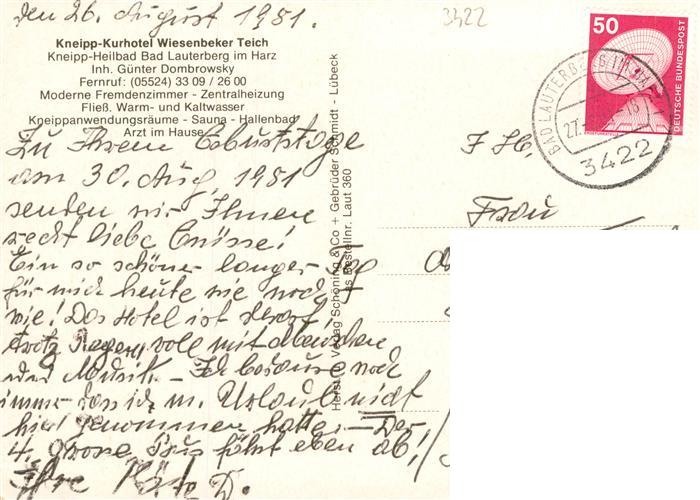 den 26. August 1981.
3422
Kneipp-Kurhotel Wiesenbeker Teich
Kneipp-Heilbad Bad Lauterberg im Harz
Inh. Günter Dombrowsky
Fernruf: (05524) 33 09 / 26 00
Moderne Fremdenzimmer - Zentralheizung
Fließ. Warm- und Kaltwasser
Kneippanwendungsräume - Sauna - Hallenbad
Arzt im Hause
Zu Ihrem Geburtstage
am 30. Aug. 1981
senden wir Ihnen
recht liebe Grüsse!
Ein so schöner langer Tag
für mich heute wie noch
nie! Das Hotel ist
trotz Regen, voll mit
und Musik. - Ich bedaure noch
immer dass ich m. Urlaub nicht
hier genommen hatte. - Der
4. grosse Bus fährt eben ab!
Ihre D.
Verlag Schöning & Co + Gebrüder Schmidt - Lübeck
Bestellnr. Laut 360
50
DEUTSCHE BUNDESPOST
BAD LAUTERBERG IM HARZ
27.
3422
Frau